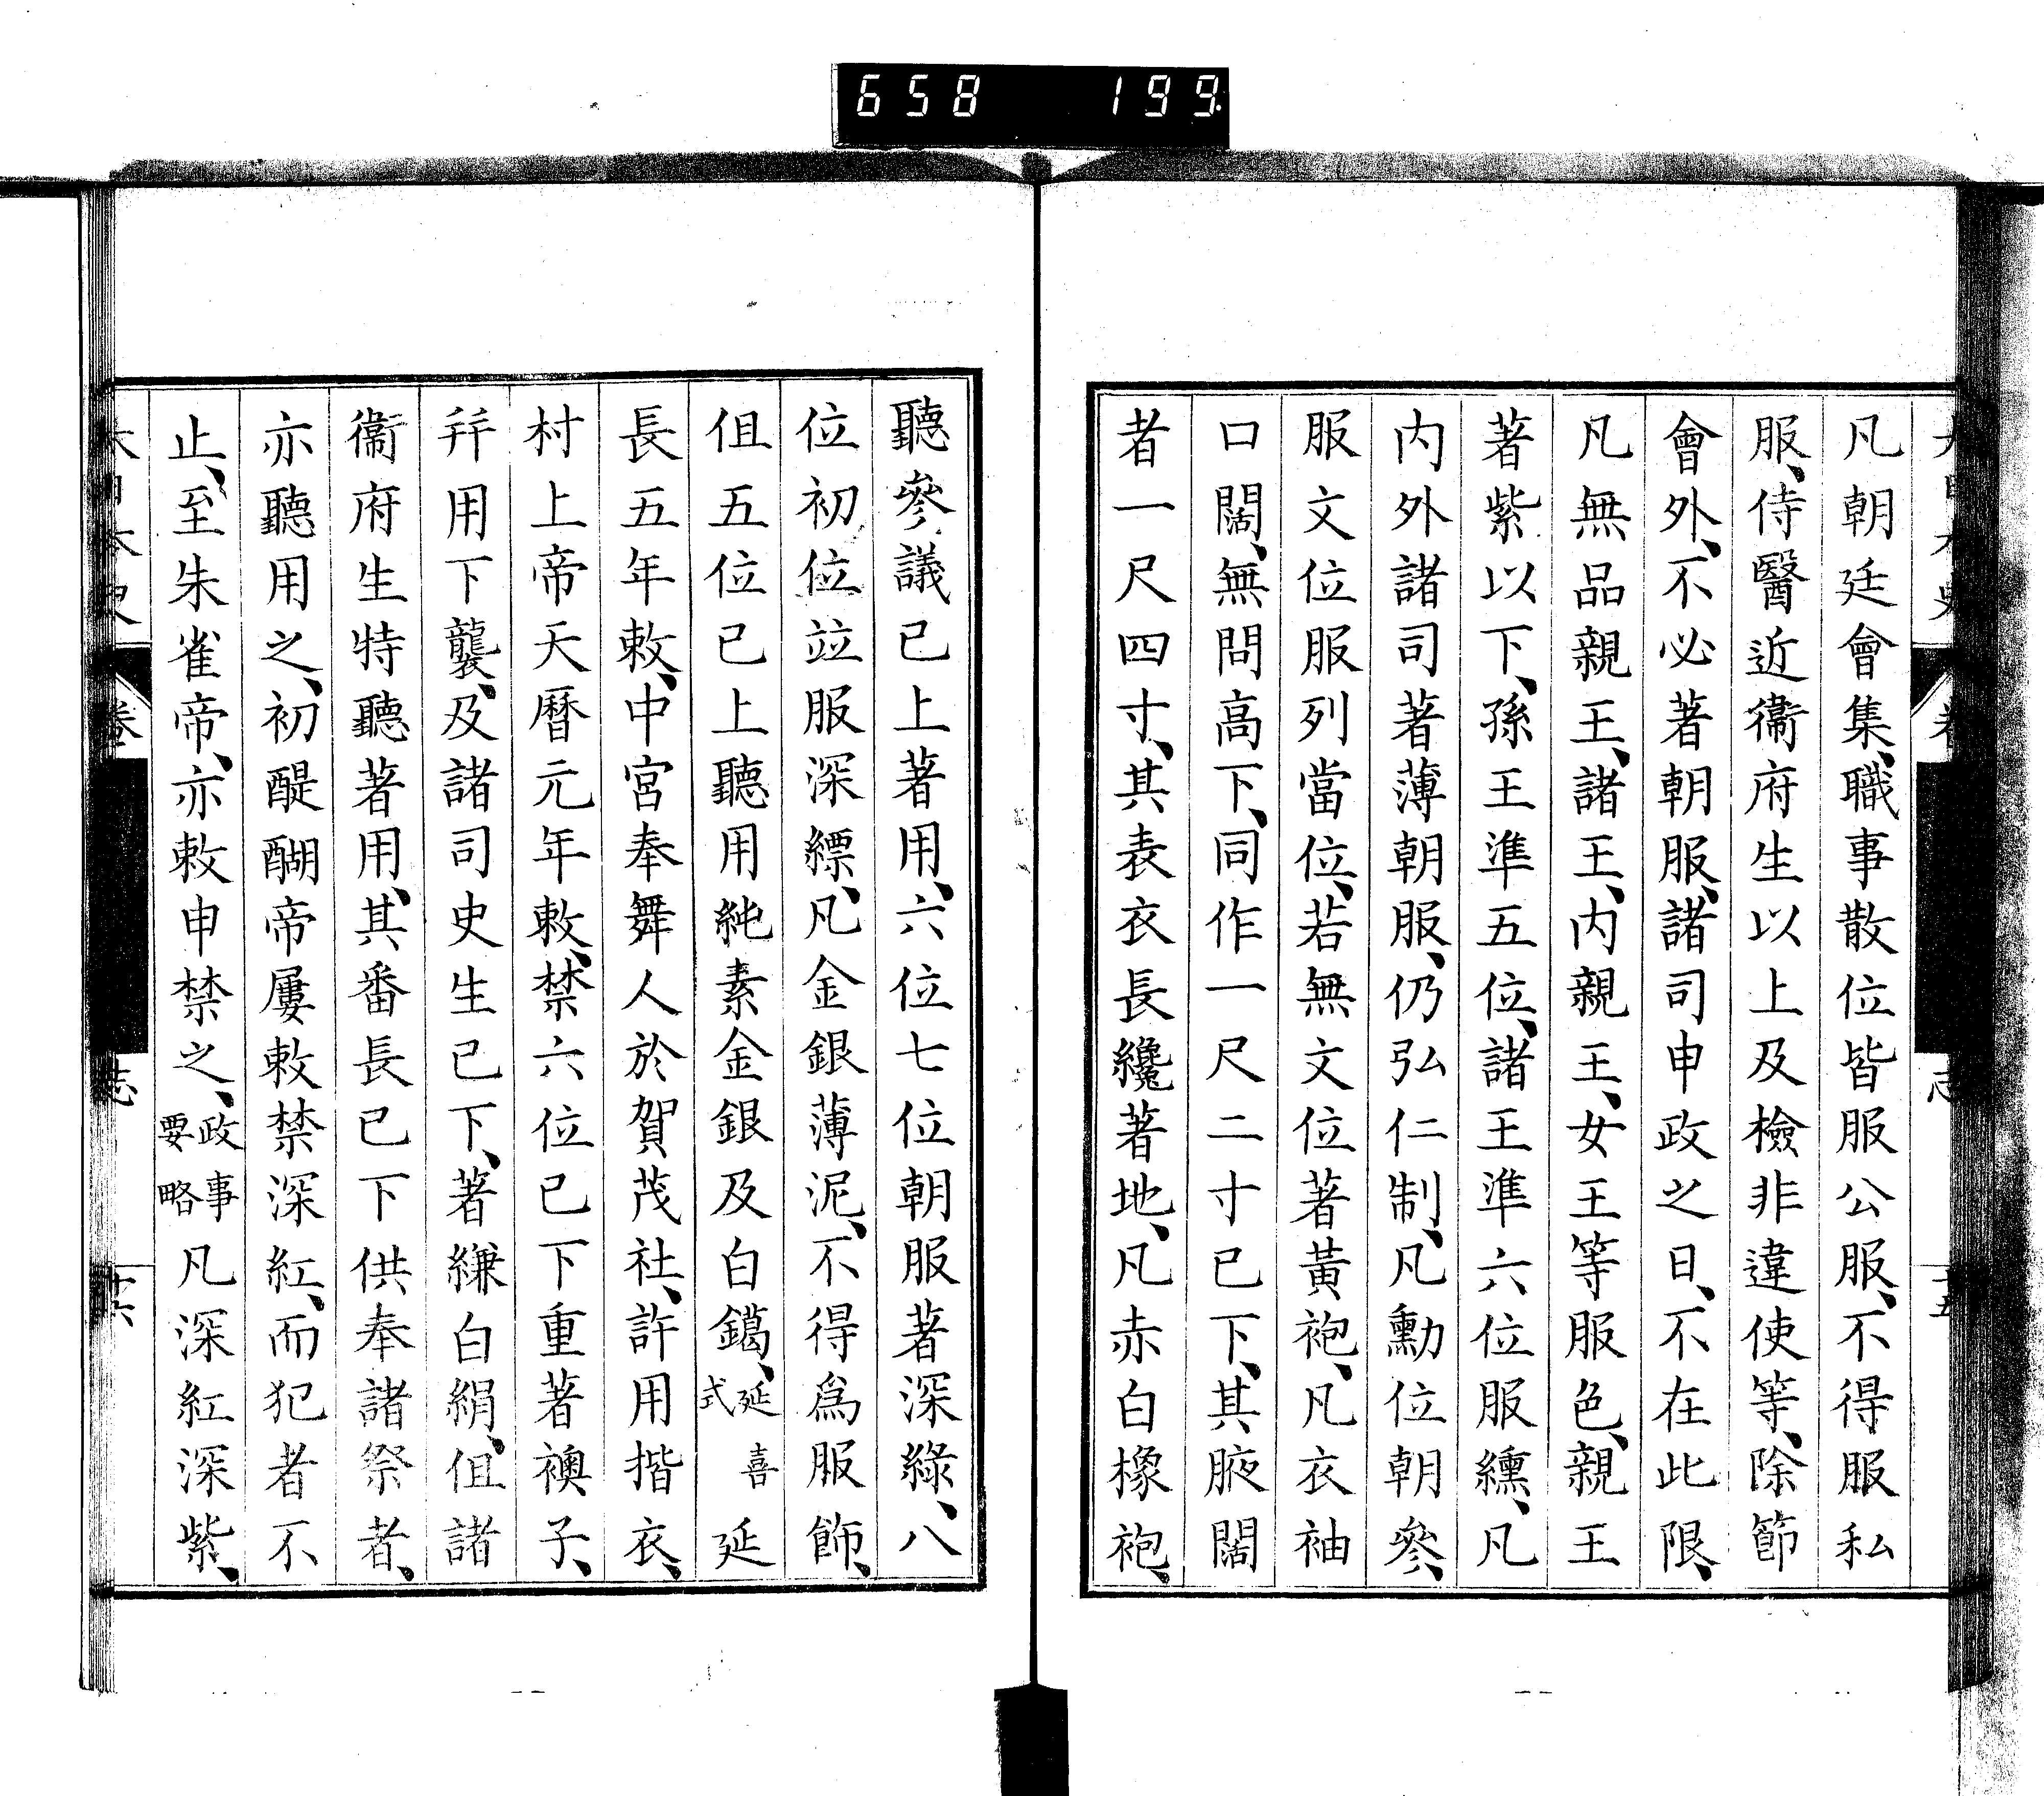 658 199
凡朝廷會集、職事散位皆服公服、不得服私
服、侍醫近衞府生以上及檢非違使等、除節
會外、不必著朝服、諸司申政之日、不在此限、
凡無品親王、諸王、内親王、女王等服色、親王
著紫以下、孫王準五位、諸王準六位服纁、凡
内外諸司著薄朝服、仍弘仁制、凡勳位朝參、
服文位服列當位、若無文位著黃袍、凡衣袖
口闊、無問高下、同作一尺二寸已下、其腋闊
者一尺四寸、其表衣長纔著地、凡赤白橡袍、
聽參議已上著用、六位七位朝服著深綠、八
位初位竝服深縹、凡金銀薄泥、不得爲服飾、
但五位已上聽用純素金銀及白鑞、延喜式延
長五年敕、中宮奉舞人於賀茂社、許用揩衣、
村上帝天曆元年敕、禁六位已下重著襖子、
幷用下襲、及諸司史生已下、著縑白絹、但諸
衞府生特聽著用、其番長已下供奉諸祭者、
亦聽用之、初醍醐帝屢敕禁深紅、而犯者不
止、至朱雀帝、亦敕申禁之、政事要略凡深紅深紫、
大日本史 卷 志 十六